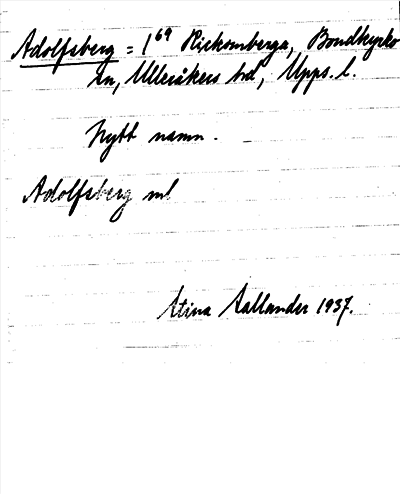 Adolfsberg = 1⁶⁹ Rickomberga, Bondkyrko
sn, Ulleråkers hd, Upps. l.
Nytt namn.
Adolfsberg ml
Stina Aallander 1937.